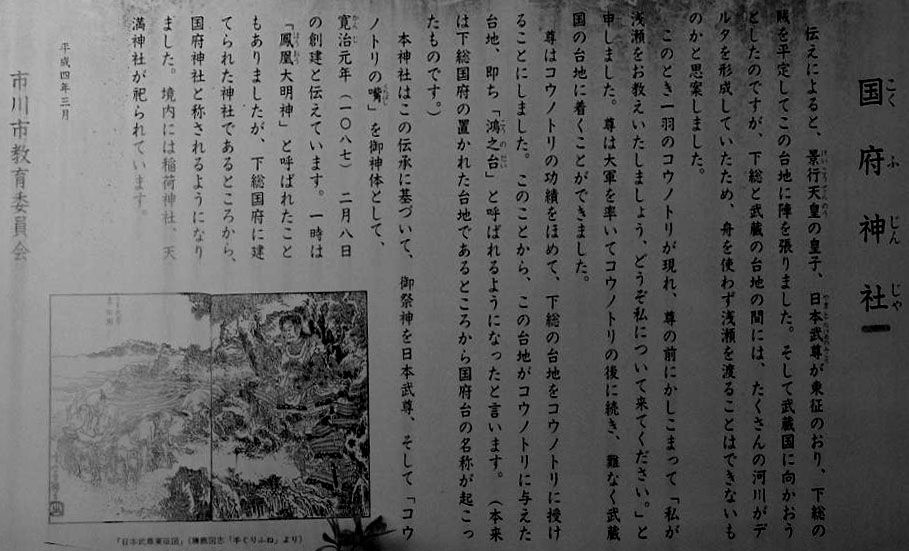 国府神社
こくふじんじゃ
伝えによると、景行天皇の皇子、日本武尊が東征のおり、下総の
賊を平定してこの台地に陣を張りました。そして武蔵国に向かおう
としたのですが、下総と武蔵の台地の間には、たくさんの河川がデ
ルタを形成していたため、舟を使わず浅瀬を渡ることはできないも
のかと思案しました。
このとき一羽のコウノトリが現れ、尊の前にかしこまって「私が
浅瀬をお教えいたしましょう、どうぞ私について来てください。」と
申しました。尊は大軍を率いてコウノトリの後に続き、難なく武蔵
国の台地に着くことができました。
尊はコウノトリの功績をほめて、下総の台地をコウノトリに授け
ることにしました。このことから、この台地がコウノトリに与えた
台地、即ち「鴻之台」と呼ばれるようになったと言います。（本来
は下総国府の置かれた台地であるところから国府台の名称が起こっ
たものです。）
本神社はこの伝承に基づいて、御祭神を日本武尊、そして「コウ
ノトリの嘴」を御神体として、
寛治元年（一〇八七）二月八日
の創建と伝えています。一時は
「鳳凰大明神」と呼ばれたこと
もありましたが、下総国府に建
てられた神社であるところから、
国府神社と称されるようになり
ました。境内には稲荷神社、天
満神社が祀られています。
平成四年三月
市川市教育委員会
「日本武尊東征図」（勝鹿図志「手くりふね」より）